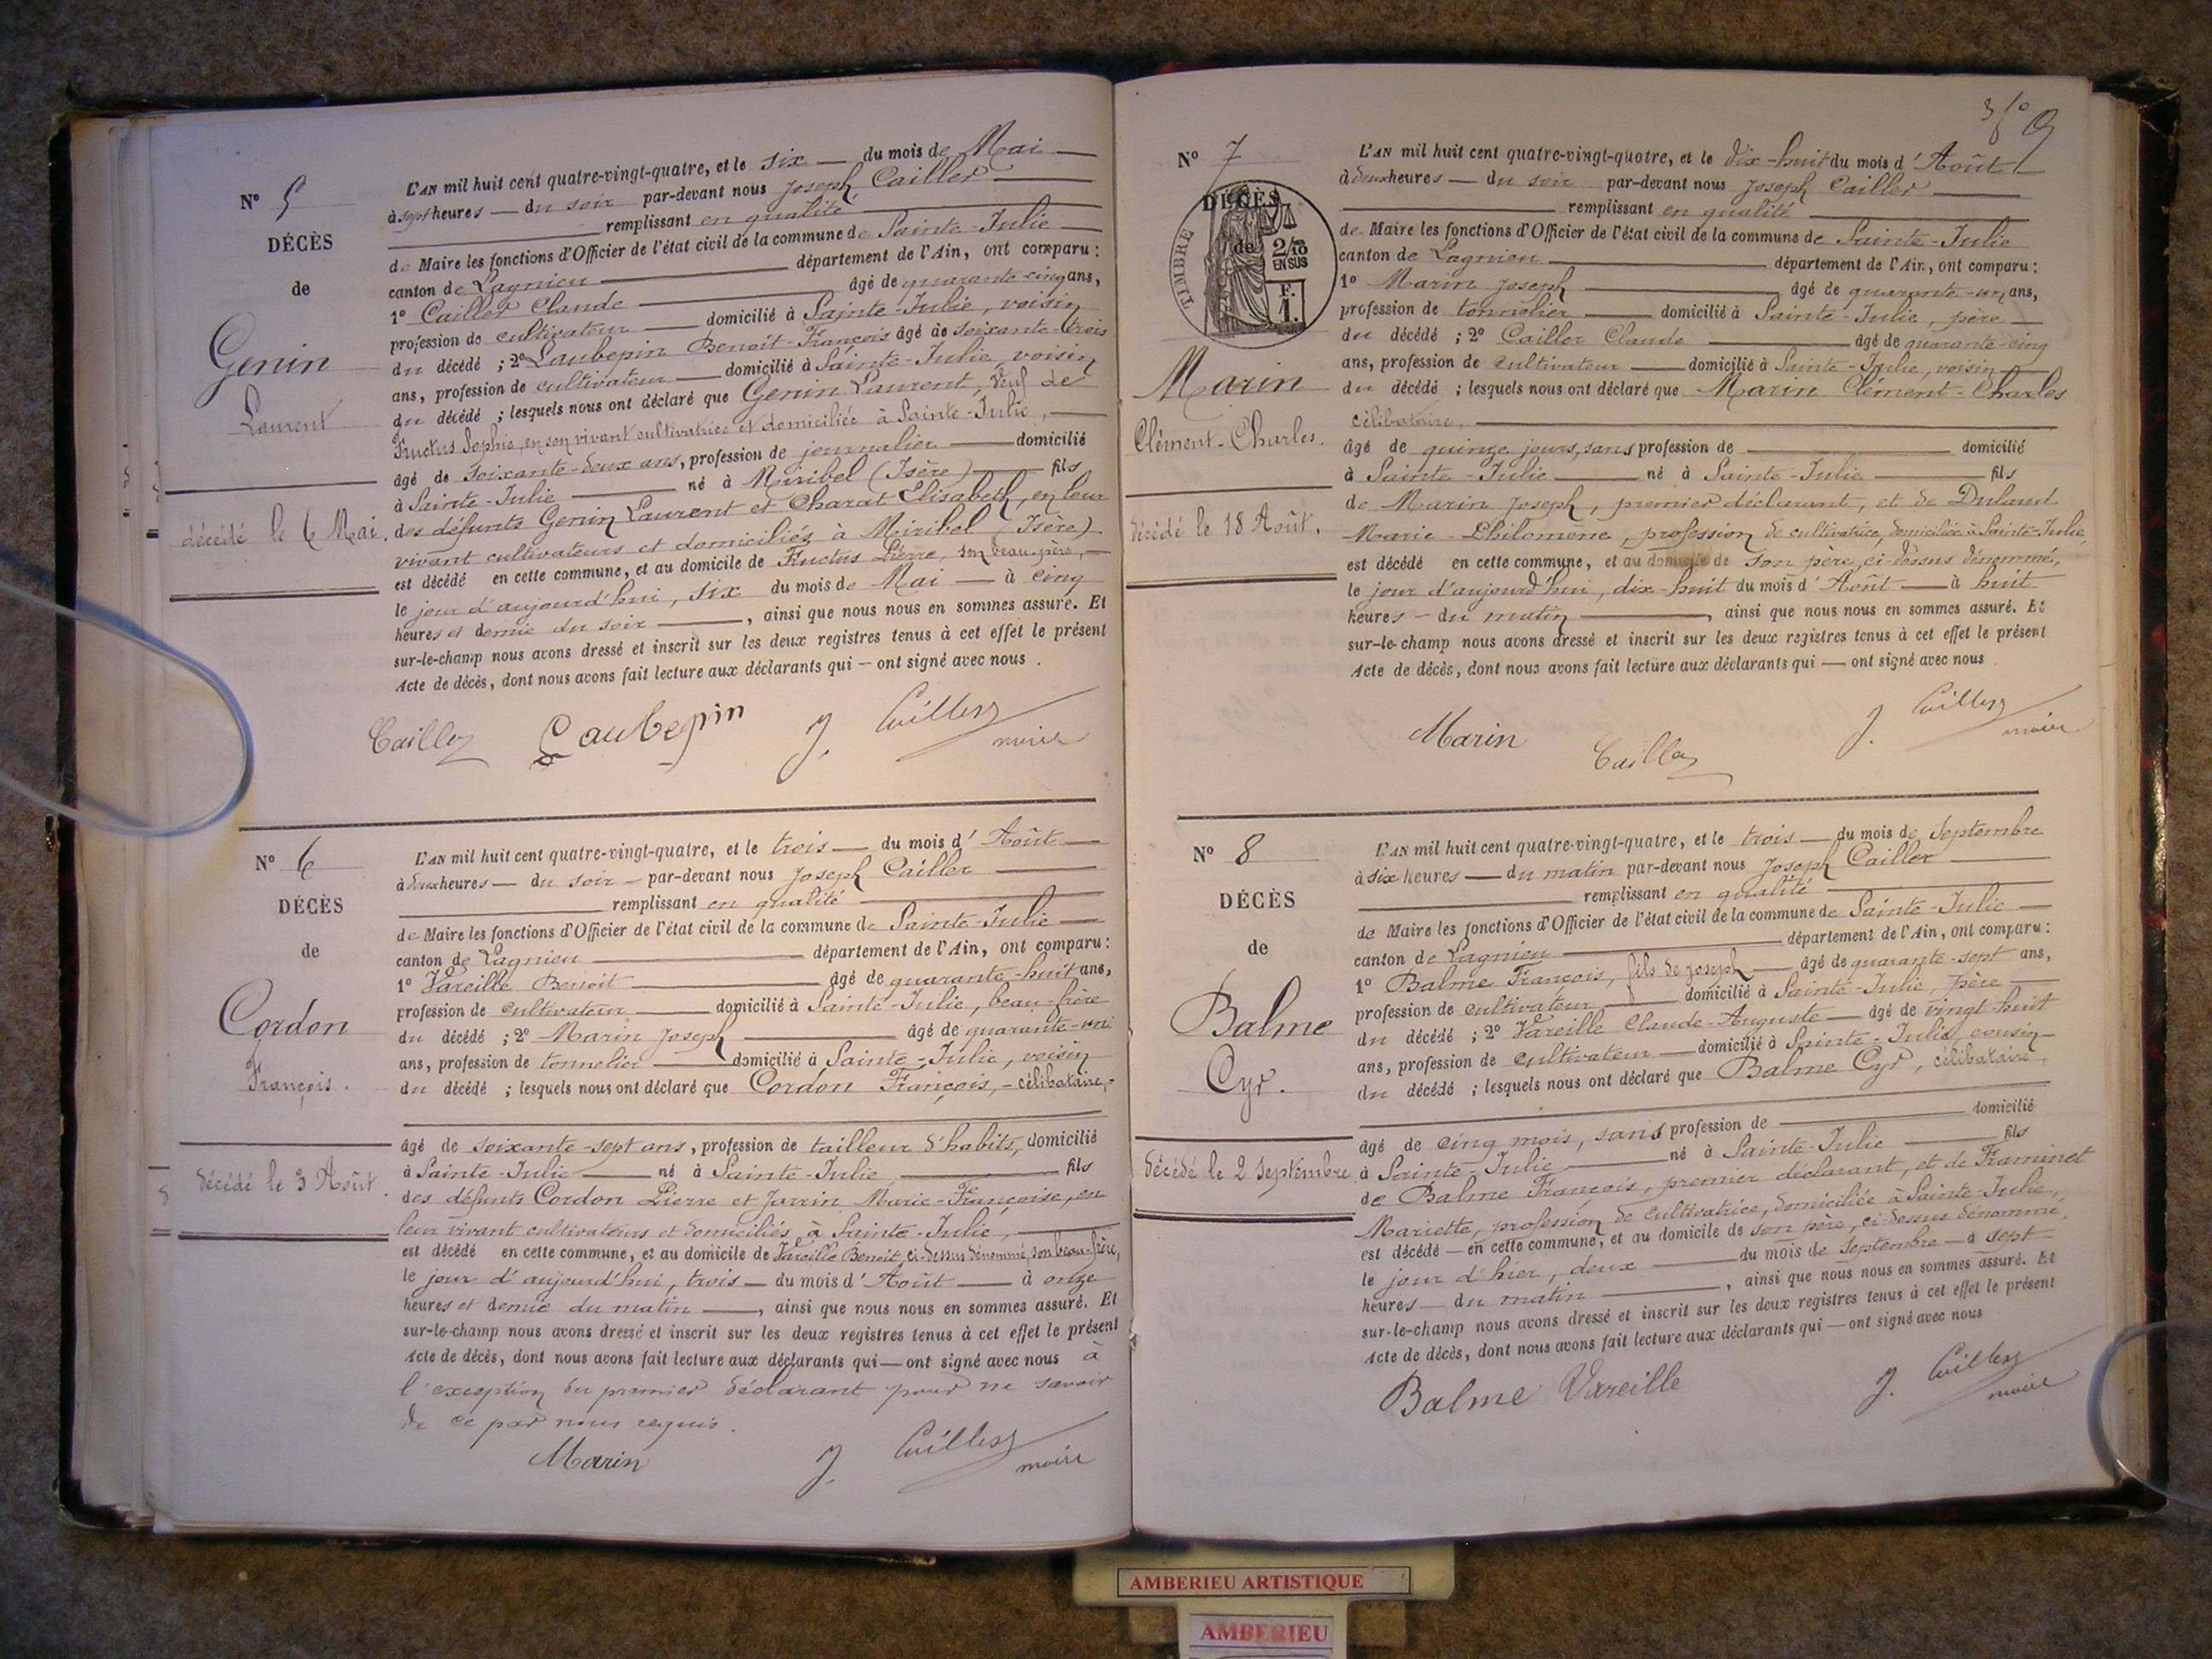 Nº 5
DÉCÈS
de
Genin
Laurent
décédé le 6 Mai.
L'AN mil huit cent quatre-vingt-quatre, et le six du mois de Mai
à sept heures du soir par-devant nous Joseph Cailler
remplissant en qualité
de Maire les fonctions d'Officier de l'état civil de la commune de Sainte-Julie
canton de Lagnieu département de l'Ain, ont comparu :
1º Cailler Claude âgé de quarante-cinq ans,
profession de cultivateur domicilié à Sainte-Julie, voisin
du décédé ; 2º Laubepin Benoit-François âgé de soixante-trois
ans, profession de cultivateur domicilié à Sainte-Julie, voisin
du décédé ; lesquels nous ont déclaré que Genin Laurent, veuf de
Fructus Sophie, en son vivant cultivatrice et domiciliée à Sainte-Julie,
âgé de soixante-deux ans, profession de journalier domicilié
à Sainte-Julie né à Miribel (Isère) fils
des défunts Genin Laurent et Charat Elisabeth, en leur
vivant cultivateurs et domiciliés à Miribel (Isère)
est décédé en cette commune, et au domicile de Fructus Pierre, son beau-père,
le jour d'aujourd'hui, six du mois de Mai à cinq
heures et demie du soir , ainsi que nous nous en sommes assuré. Et
sur-le-champ nous avons dressé et inscrit sur les deux registres tenus à cet effet le présent
Acte de décès, dont nous avons fait lecture aux déclarants qui — ont signé avec nous .
Cailler Laubepin J. Cailler
maire
Nº 6
DÉCÈS
de
Cordon
François.
décédé le 3 Août.
L'AN mil huit cent quatre-vingt-quatre, et le trois du mois d'Août
à deux heures du soir par-devant nous Joseph Cailler
remplissant en qualité
de Maire les fonctions d'Officier de l'état civil de la commune de Sainte-Julie
canton de Lagnieu département de l'Ain, ont comparu :
1º Vareille Benoit âgé de quarante-huit ans,
profession de cultivateur domicilié à Sainte-Julie, beau-frère
du décédé ; 2º Marin Joseph âgé de quarante-un
ans, profession de tonnelier domicilié à Sainte-Julie, voisin
du décédé ; lesquels nous ont déclaré que Cordon François, - célibataire,
âgé de soixante-sept ans, profession de tailleur d'habits, domicilié
à Sainte-Julie né à Sainte-Julie, fils
des défunts Cordon Pierre et Jarrin Marie-Françoise, en
leur vivant cultivateurs et domiciliés à Sainte-Julie,
est décédé en cette commune, et au domicile de Vareille Benoit, ci-dessus dénommé, son beau-frère,
le jour d'aujourd'hui, trois du mois d'Août à onze
heures et demie du matin , ainsi que nous nous en sommes assuré. Et
sur-le-champ nous avons dressé et inscrit sur les deux registres tenus à cet effet le présent
Acte de décès, dont nous avons fait lecture aux déclarants qui — ont signé avec nous à
l'exception du premier déclarant pour ne savoir
de ce par nous requis.
Marin J. Cailler
maire
9
Nº 7
DÉCÈS
de
TIMBRE
2/10
EN SUS
F.
1.
Marin
Clément-Charles.
décédé le 18 Août.
L'AN mil huit cent quatre-vingt-quatre, et le dix-huit du mois d'Août
à deux heures du soir par-devant nous Joseph Cailler
remplissant en qualité
de Maire les fonctions d'Officier de l'état civil de la commune de Sainte-Julie
canton de Lagnieu département de l'Ain, ont comparu :
1º Marin Joseph âgé de quarante-un ans,
profession de tonnelier domicilié à Sainte-Julie, père
du décédé ; 2º Cailler Claude âgé de quarante-cinq
ans, profession de cultivateur domicilié à Sainte-Julie, voisin
du décédé ; lesquels nous ont déclaré que Marin Clément-Charles
célibataire,
âgé de quinze jours, sans profession de domicilié
à Sainte-Julie né à Sainte-Julie fils
de Marin Joseph, premier déclarant, et de Duland
Marie-Philomène, profession de cultivatrice, domiciliée à Sainte-Julie,
est décédé en cette commune, et au domicile de son père, ci-dessus dénommé,
le jour d'aujourd'hui, dix-huit du mois d'Août à huit
heures - du matin , ainsi que nous nous en sommes assuré. Et
sur-le-champ nous avons dressé et inscrit sur les deux registres tenus à cet effet le présent
Acte de décès, dont nous avons fait lecture aux déclarants qui — ont signé avec nous .
Marin Cailler J. Cailler
maire
Nº 8
DÉCÈS
de
Balme
Cyr.
décédé le 2 Septembre
L'AN mil huit cent quatre-vingt-quatre, et le trois du mois de Septembre
à six heures du matin par-devant nous Joseph Cailler
remplissant en qualité
de Maire les fonctions d'Officier de l'état civil de la commune de Sainte-Julie
canton de Lagnieu département de l'Ain, ont comparu :
1º Balme François, fils de Joseph âgé de quarante-sept ans,
profession de cultivateur domicilié à Sainte-Julie, père
du décédé ; 2º Vareille Claude-Auguste âgé de vingt-huit
ans, profession de cultivateur domicilié à Sainte-Julie, cousin
du décédé ; lesquels nous ont déclaré que Balme Cyr, célibataire,
âgé de cinq mois, sans profession de domicilié
à Sainte-Julie né à Sainte-Julie fils
de Balme François, premier déclarant, et de Framinet
Mariette, profession de cultivatrice, domiciliée à Sainte-Julie,
est décédé — en cette commune, et au domicile de son père, ci-dessus dénommé,
le jour d'hier, deux du mois de Septembre à sept
heures du matin , ainsi que nous nous en sommes assuré. Et
sur-le-champ nous avons dressé et inscrit sur les deux registres tenus à cet effet le présent
Acte de décès, dont nous avons fait lecture aux déclarants qui — ont signé avec nous
Balme Vareille J. Cailler
maire
AMBERIEU ARTISTIQUE
AMBERIEU